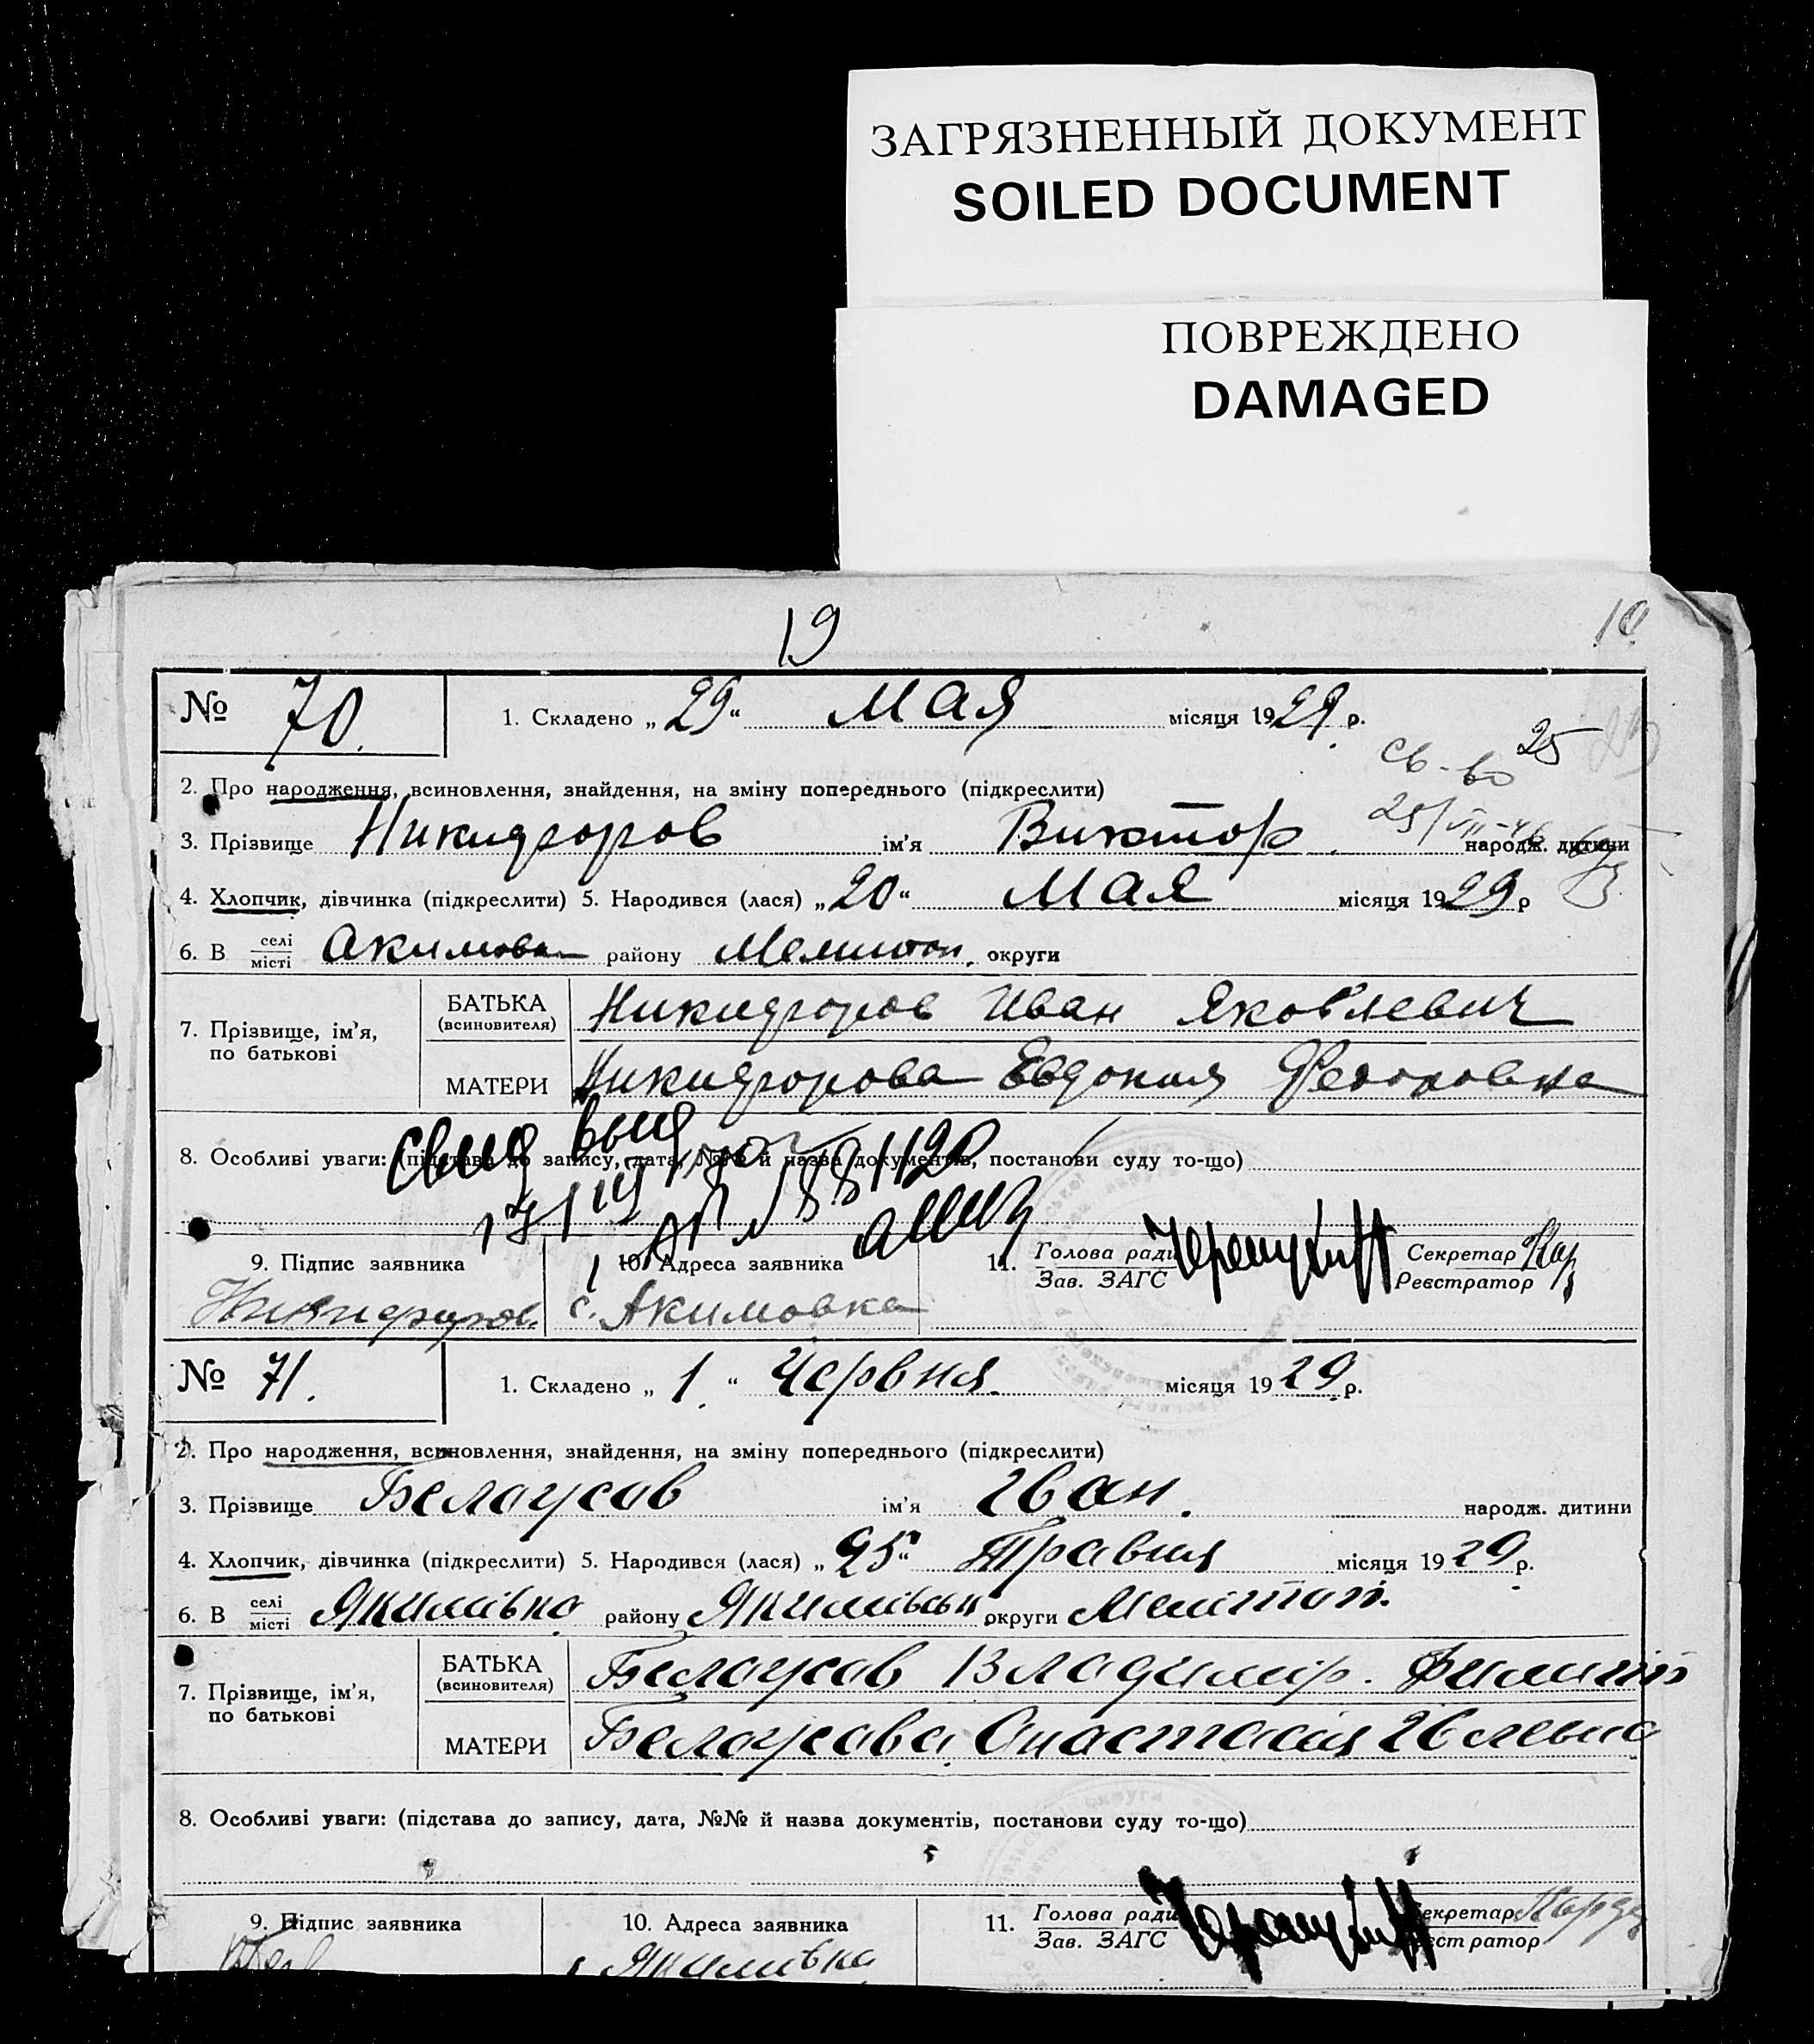 ЗАГРЯЗНЕННЫЙ ДОКУМЕНТ
SOILED DOCUMENT
ПОВРЕЖДЕНО
DAMAGED
19
№ 70. 1. Складено „29“ Мая місяця 1929 р.
св-во 25
2. Про народження, всиновлення, знайдення, на зміну попереднього (підкреслити)
3. Прізвище Никифоров ім'я Виктор народж. дитини
4. Хлопчик, дівчинка (підкреслити) 5. Народився (лася) „20“ Мая місяця 1929 р
6. В селі місті Акимовка району Мелитоп. округи
7. Прізвище, ім'я, по батькові
БАТЬКА (всиновителя) Никифоров Иван Яковлевич
МАТЕРИ Никифорова Евдокия Федоровна
8. Особливі уваги: (підстава до запису, дата, №№ й назва документів, постанови суду то-що)
9. Підпис заявника 10. Адреса заявника 11. Голова ради Зав. ЗАГС Секретар Реєстратор
Никифоров с. Акимовка
№ 71. 1. Складено „1“ Червня місяця 1929 р.
2. Про народження, всиновлення, знайдення, на зміну попереднього (підкреслити)
3. Прізвище Белоусов ім'я Іван. народж. дитини
4. Хлопчик, дівчинка (підкреслити) 5. Народився (лася) „25“ Травня місяця 1929 р.
6. В селі місті Якимівка району Якимівськ округи Мелітоп.
7. Прізвище, ім'я, по батькові
БАТЬКА (всиновителя) Белоусов Владимір. Филип
МАТЕРИ Белоусова Анастасія
8. Особливі уваги: (підстава до запису, дата, №№ й назва документів, постанови суду то-що)
9. Підпис заявника 10. Адреса заявника 11. Голова ради Зав. ЗАГС Секретар Реєстратор
Якимівка